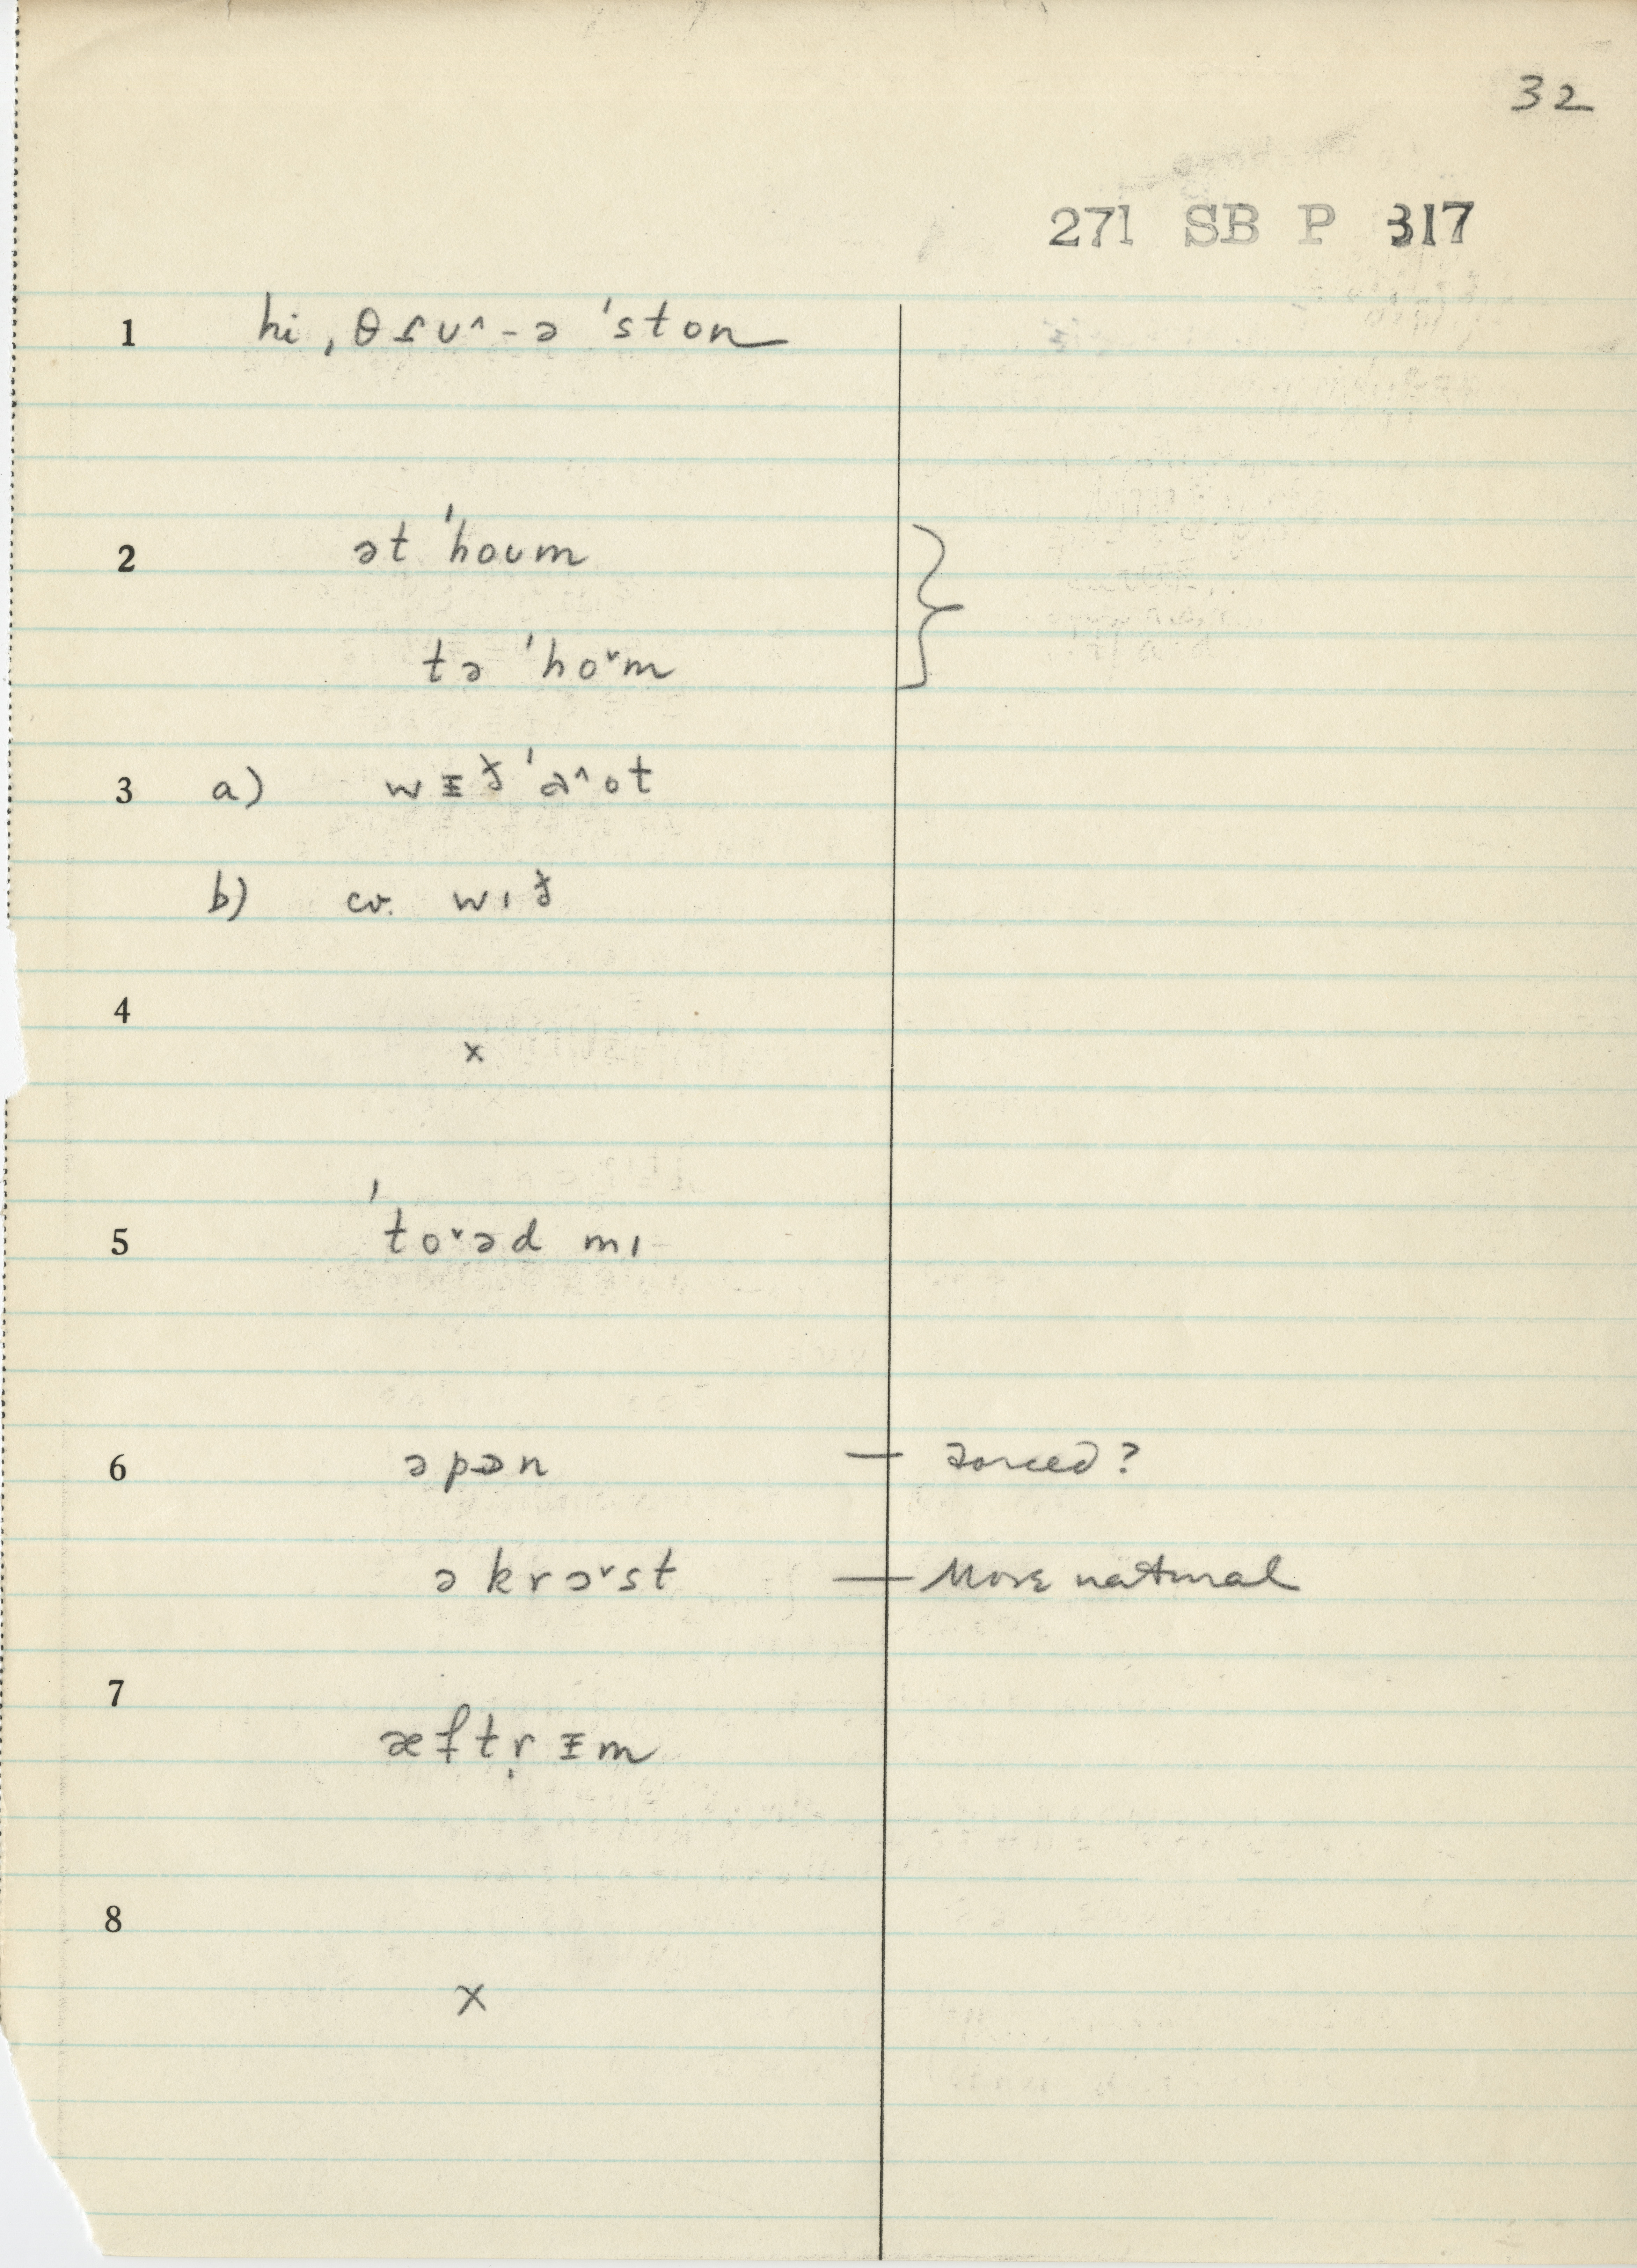 32
271 SB P 317
1 hi ˌθɾʊ^-ə 'ston
2 ət 'houm
tə 'ho˅m
3 a) wᵻð 'a^ot
b) cv. wɪð
4
x
5 'to˅əd mɪ
6 əpɔn — forced?
əkrɔ˅st — More natural
7 æftṛ ᵻm
8
x